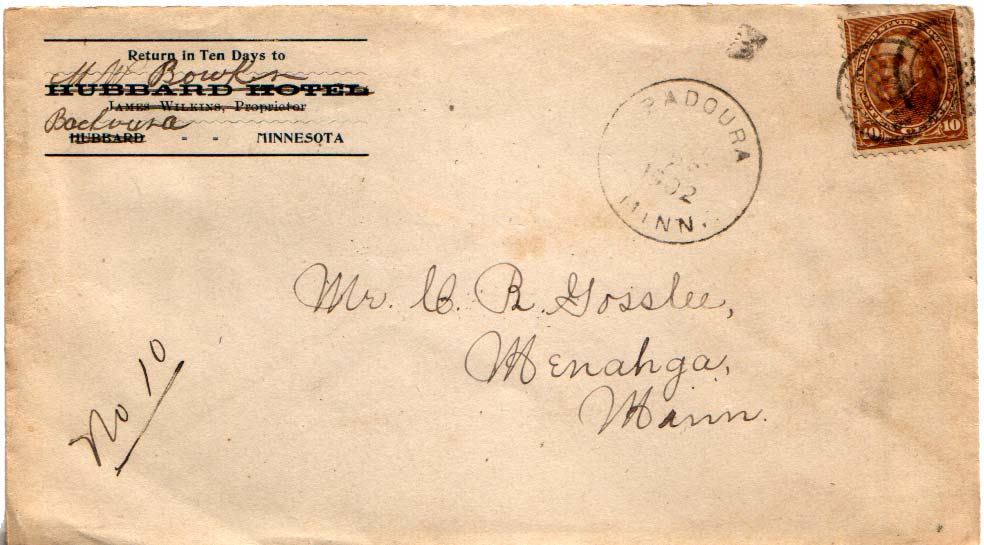 Return in Ten Days to
M M Bowker
HUBBARD HOTEL
JAMES WILKINS, Proprietor
Badoura
HUBBARD - - MINNESOTA
BADOURA
1902
MINN.
UNITED STATES
10 10
Mr. C. B. Gosslee,
Menahga,
Minn.
No 10